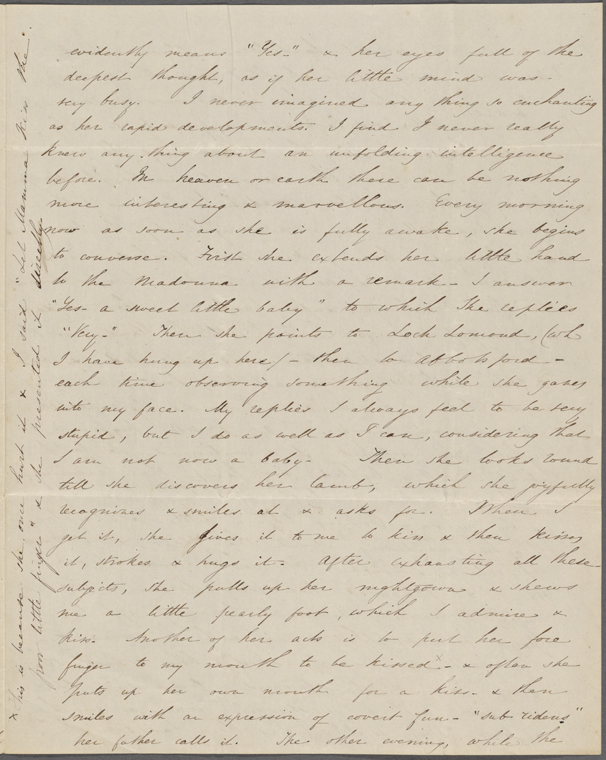 evidently means "Yes-" & her eyes full of the
deepest thought, as if her little mind was
very busy. I never imagined any thing so enchanting
as her rapid developments. I find I never really
knew any thing about an unfolding intelligence
before. In heaven or earth there can be nothing
more interesting & marvellous. Every morning
now as soon as she is fully awake, she begins
to converse. First she extends her little hand
to the Madonna with a remark - I answer
"Yes- a sweet little baby" to which she replies
"Key-" Then she points to Loch Lomond, (wh
I have hung up here) - then to Abbotsford -
each time observing something while she gazes
into my face. My replies I always feel to be very
stupid, but I do as well as I can, considering that
I am not now a baby- Then she looks round
till she discovers her lamb, which she joyfully
recognizes & smiles at & asks for. When I
get it, she gives it to me to kiss & then kisses
it, strokes & hugs it. After exhausting all these
subjects, she pulls up her nightgown & shews
me a little pearly foot, which I admire &
kiss. Another of her acts is to put her fore
finger to my mouth to be kissed x - & often she
puts up her own mouth for a kiss- & then
smiles with an expression of covert fun- "sub ridens"
her father calls it. The other evening, while the
x This is because she once hurt it & I said "Let Mamma kiss the
poor little finger" & she presented it directly.